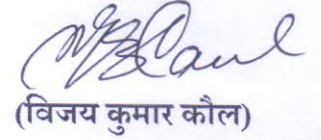 (विजय कुमार कौल)